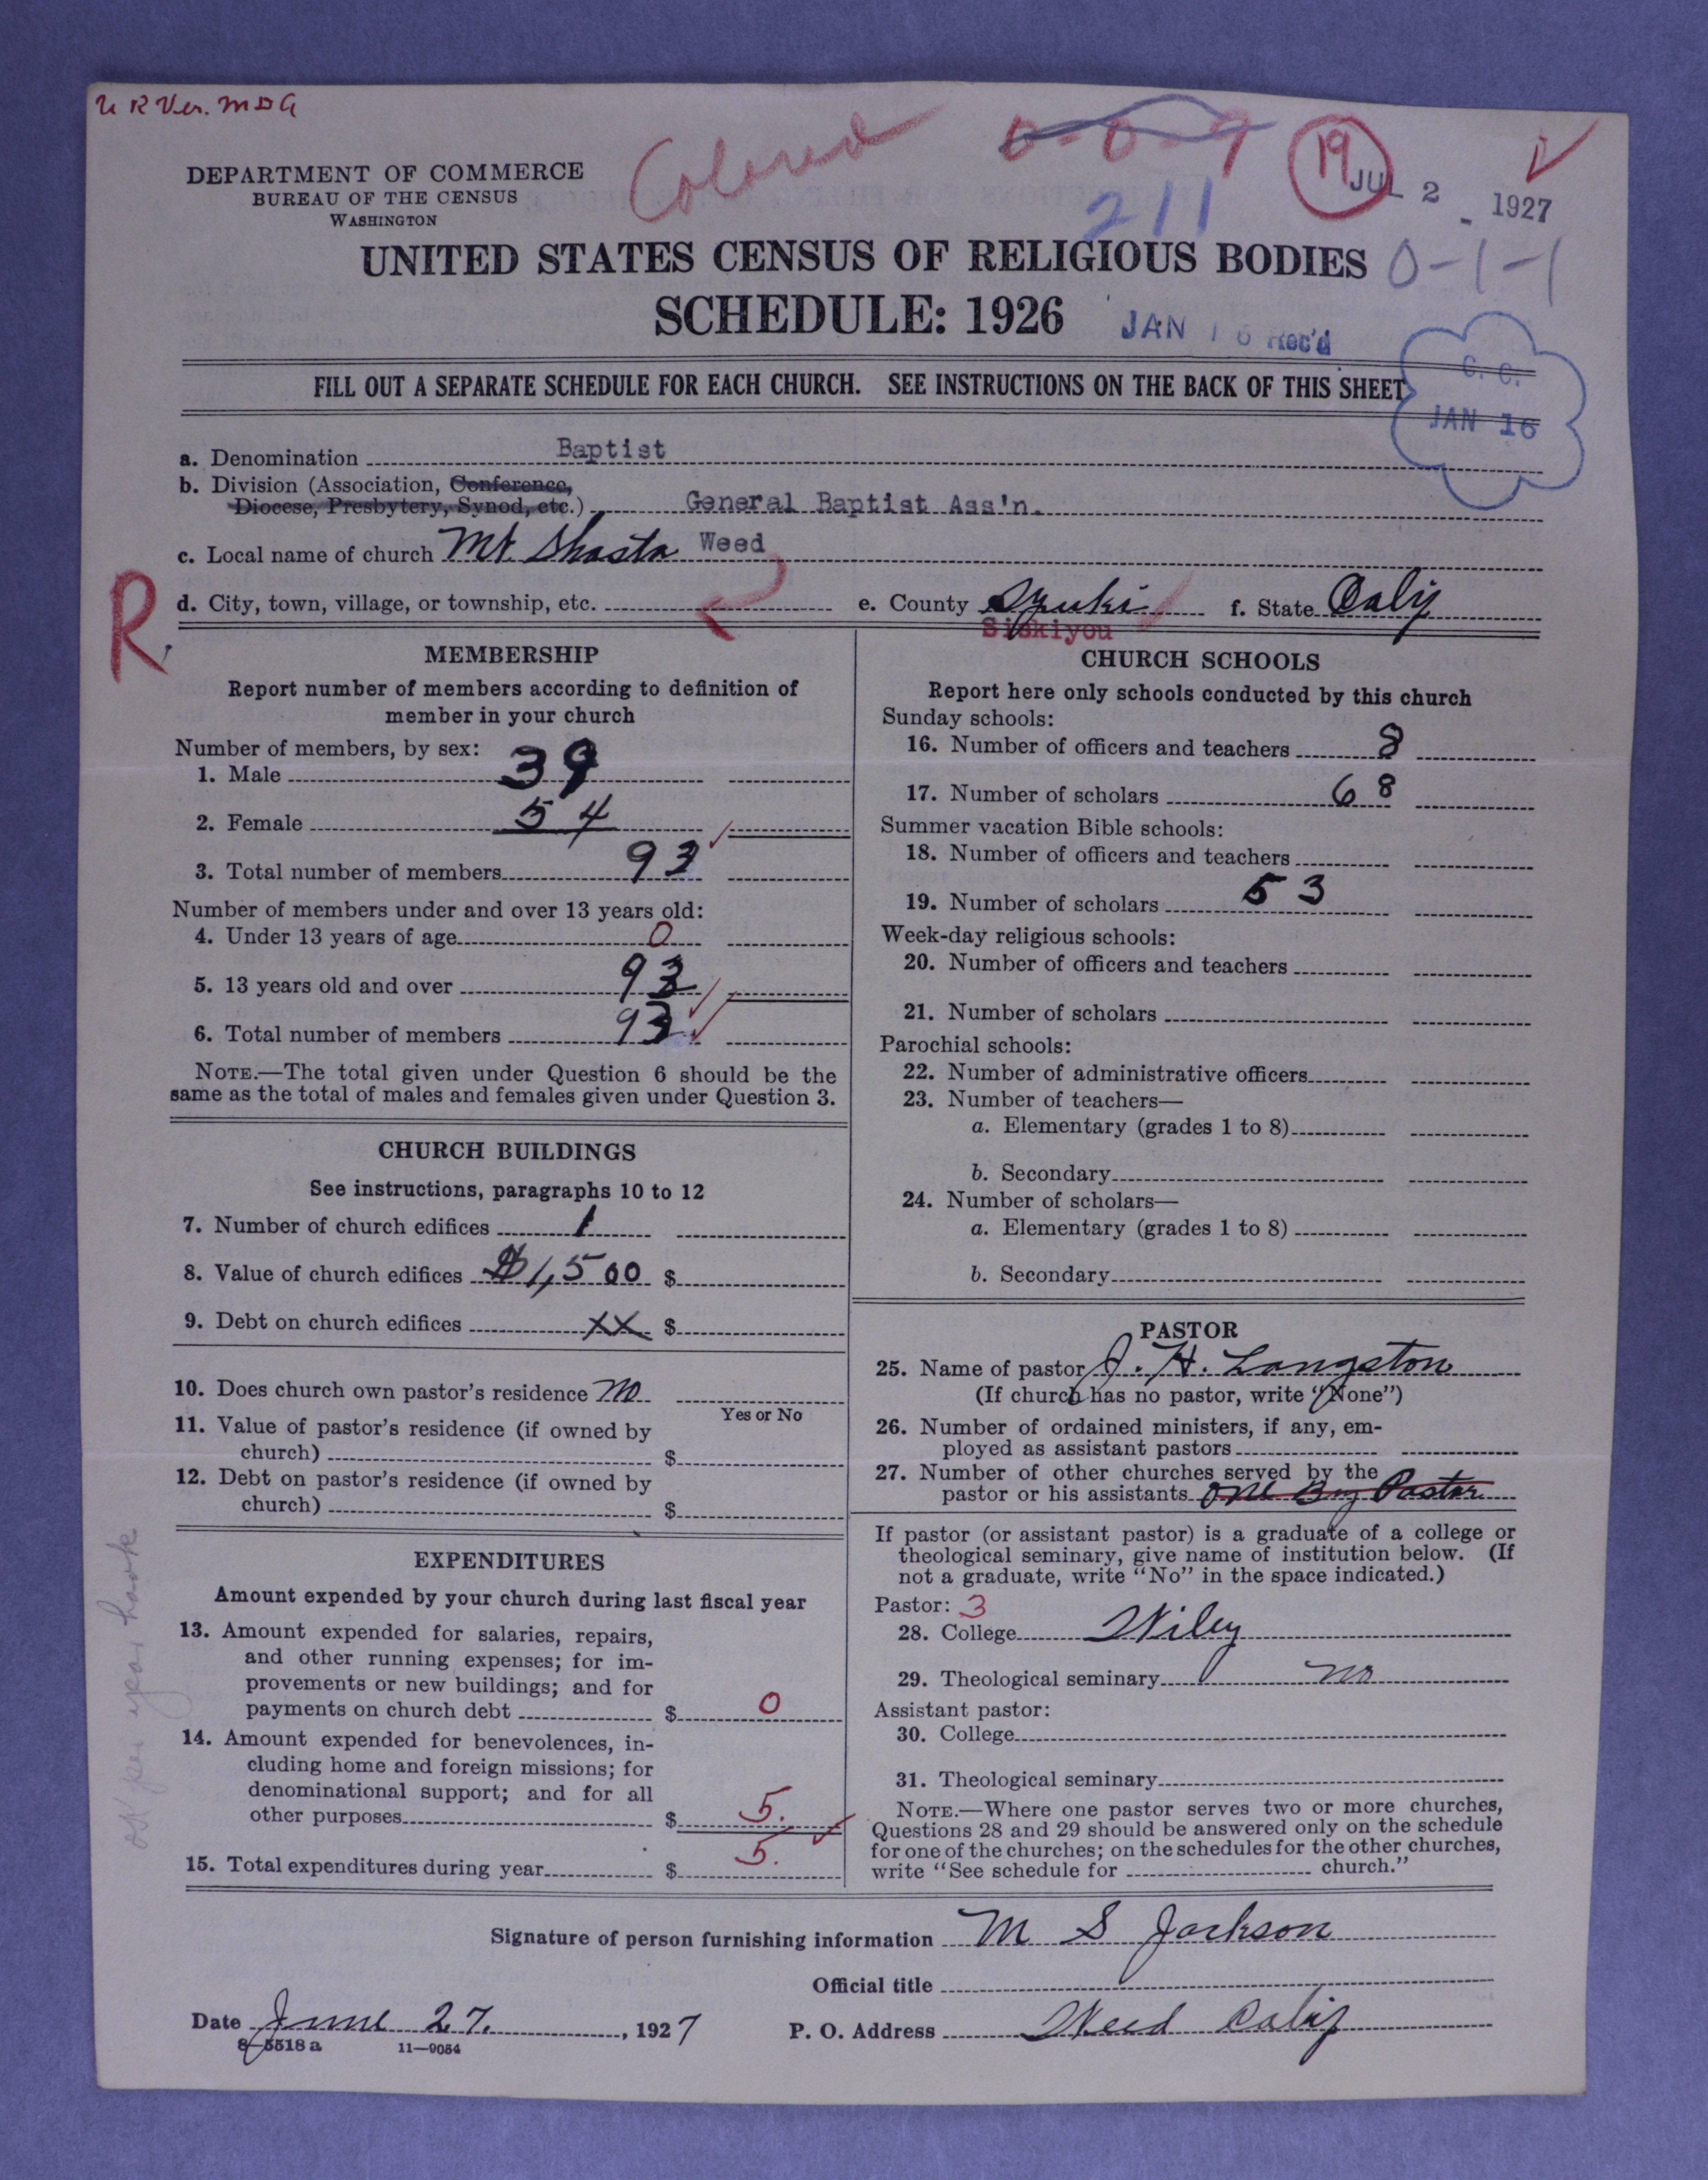 U R Ver. M D G
Colored 0-0-9 19
JUL 2 - 1927
211
DEPARTMENT OF COMMERCE
BUREAU OF THE CENSUS
WASHINGTON
UNITED STATES CENSUS OF RELIGIOUS BODIES
0-1-1
SCHEDULE: 1926
JAN 16 Rec'd
FILL OUT A SEPARATE SCHEDULE FOR EACH CHURCH. SEE INSTRUCTIONS ON THE BACK OF THIS SHEET
C. C.
JAN 16
a. Denomination Baptist
b. Division (Association, Conference,
Diocese, Presbytery, Synod, etc.) General Baptist Ass'n.
c. Local name of church Mt. Shasta Weed
R
d. City, town, village, or township, etc. e. County f. State Calif
Siskiyou
MEMBERSHIP
Report number of members according to definition of
member in your church
Number of members, by sex:
1. Male 39
2. Female 54
3. Total number of members 93
Number of members under and over 13 years old:
4. Under 13 years of age 0
5. 13 years old and over 93
6. Total number of members 93
NOTE.—The total given under Question 6 should be the
same as the total of males and females given under Question 3.
CHURCH BUILDINGS
See instructions, paragraphs 10 to 12
7. Number of church edifices 1
8. Value of church edifices $1,500 $
9. Debt on church edifices xx $
10. Does church own pastor's residence no
Yes or No
11. Value of pastor's residence (if owned by
church) $
12. Debt on pastor's residence (if owned by
church) $
EXPENDITURES
Amount expended by your church during last fiscal year
13. Amount expended for salaries, repairs,
and other running expenses; for im-
provements or new buildings; and for
payments on church debt $ 0
14. Amount expended for benevolences, in-
cluding home and foreign missions; for
denominational support; and for all
other purposes $ 5.
15. Total expenditures during year $ 5.
OK per year book
CHURCH SCHOOLS
Report here only schools conducted by this church
Sunday schools:
16. Number of officers and teachers 8
17. Number of scholars 68
Summer vacation Bible schools:
18. Number of officers and teachers
19. Number of scholars 53
Week-day religious schools:
20. Number of officers and teachers
21. Number of scholars
Parochial schools:
22. Number of administrative officers
23. Number of teachers—
a. Elementary (grades 1 to 8)
b. Secondary
24. Number of scholars—
a. Elementary (grades 1 to 8)
b. Secondary
PASTOR
25. Name of pastor J. H. Langston
(If church has no pastor, write "None")
26. Number of ordained ministers, if any, em-
ployed as assistant pastors
27. Number of other churches served by the
pastor or his assistants one By Pastor
If pastor (or assistant pastor) is a graduate of a college or
theological seminary, give name of institution below. (If
not a graduate, write "No" in the space indicated.)
Pastor: 3
28. College Wiley
29. Theological seminary no
Assistant pastor:
30. College
31. Theological seminary
NOTE.—Where one pastor serves two or more churches,
Questions 28 and 29 should be answered only on the schedule
for one of the churches; on the schedules for the other churches,
write "See schedule for church."
Signature of person furnishing information M S Jackson
Official title
Date June 27, 1927 P. O. Address Weed Calif
8—5518 a 11—9054